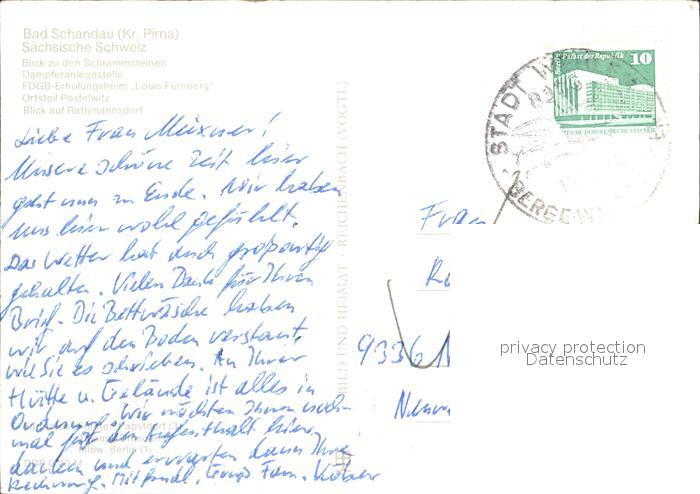 Bad Schandau (Kr. Pirna)
Sächsische Schweiz
Blick zu den Schrammsteinen
Dampferanlegestelle
FDGB-Erholungsheim „Louis Fürnberg"
Ortsteil Postelwitz
Blick auf Rathmannsdorf
Liebe Frau Meixner!
Unsere schöne Zeit hier
geht nun zu Ende. Wir haben
uns hier wohl gefühlt.
Das Wetter hat auch großartig
gehalten. Vielen Dank für Ihren
Brief. Die Bettwäsche haben
wir auf den Boden verstaut,
wie Sie es schrieben. An Ihrer
Hütte u. Gelände ist alles in
Ordnung. Wir möchten Ihnen noch-
mal für den Aufenthalt hier
danken und erwarten dann Ihre
Rechnung. Mit freundl. Fam.
BILD UND HEIMAT · REICHENBACH (VOGTL)
Palast der Republik
10
DEUTSCHE DEMOKRATISCHE REPUBLIK
STADT
BERGE
Frau
9336
privacy protection
Datenschutz